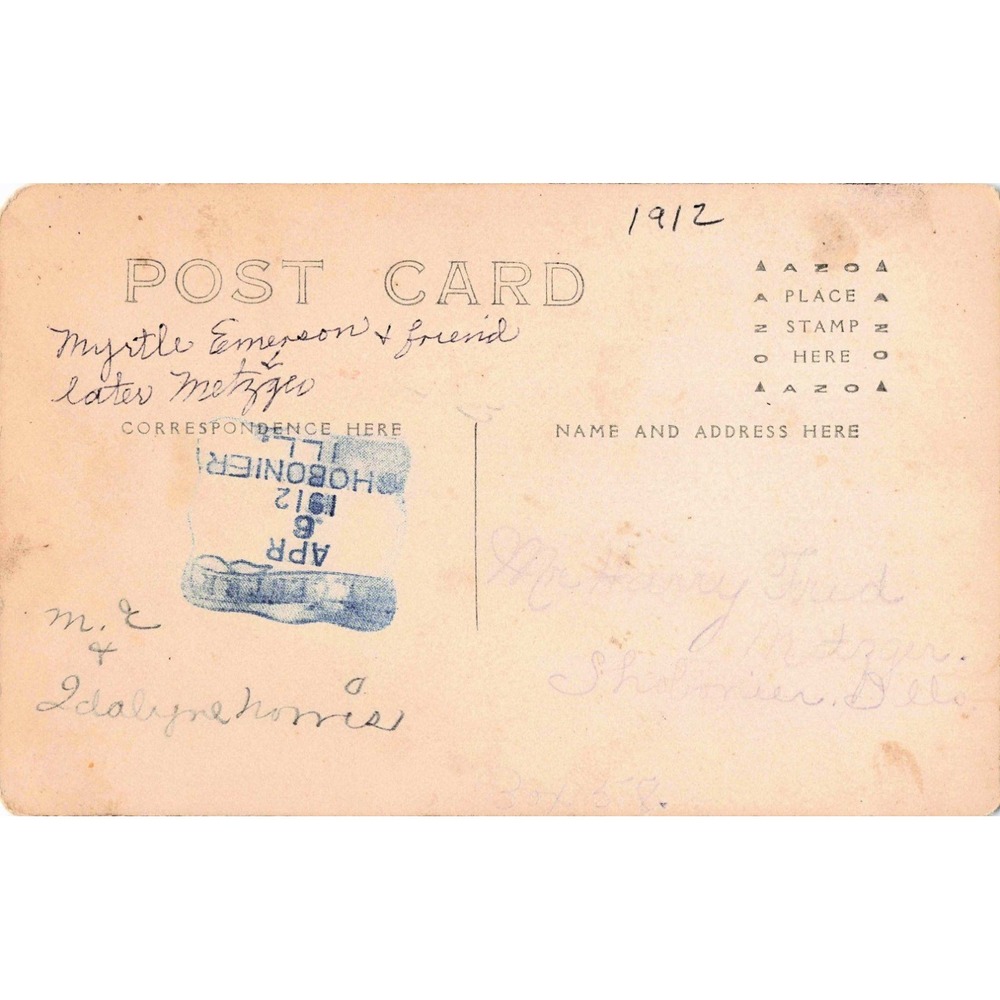 1912
POST CARD
AZO
PLACE
STAMP
HERE
AZO
Myrtle Emerson & friend
later Metzger
CORRESPONDENCE HERE
NAME AND ADDRESS HERE
SHOBONIER
ILL.
APR
6
1912
Mr Henry Fred
Metzger.
Shobonier. Ills.
Box 58.
M. E
&
Idalyne Norris